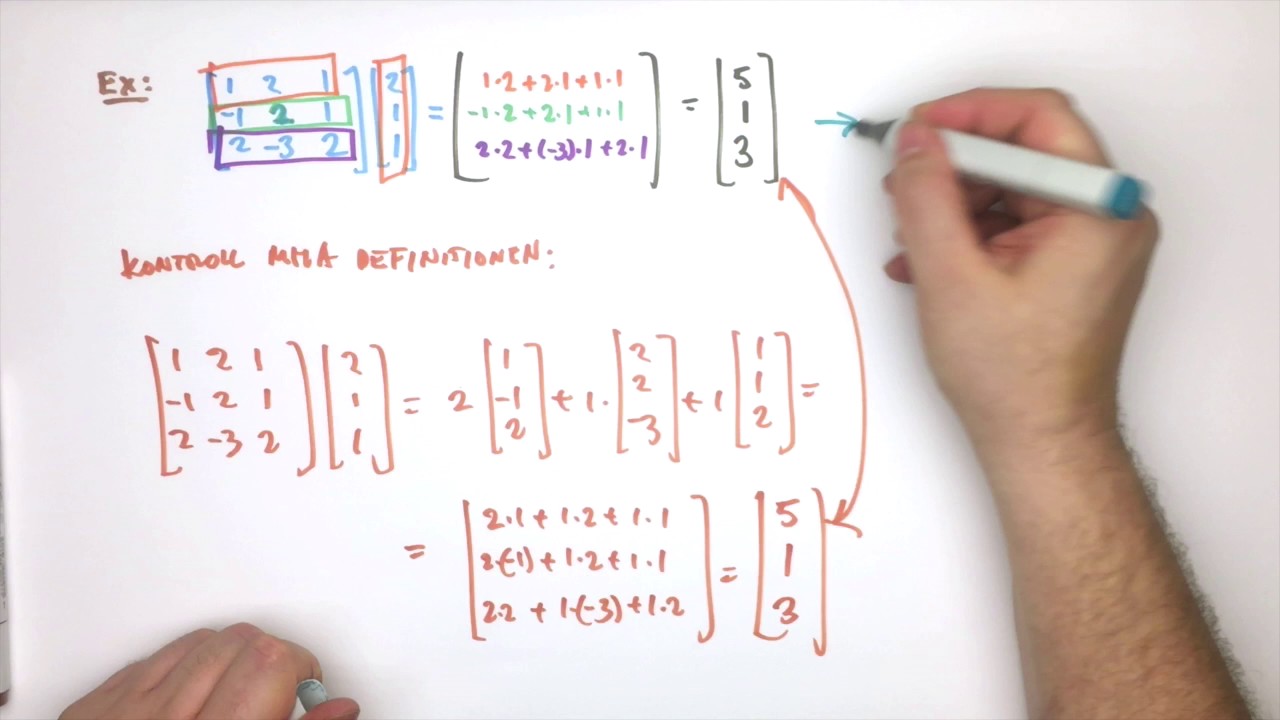 Ex: [1 2 1; -1 2 1; 2 -3 2] [2; 1; 1] = [1·2+2·1+1·1; -1·2+2·1+1·1; 2·2+(-3)·1+2·1] = [5; 1; 3] →
KONTROLL MHA DEFINITIONEN:
[1 2 1; -1 2 1; 2 -3 2] [2; 1; 1] = 2 [1; -1; 2] + 1· [2; 2; -3] + 1 [1; 1; 2] =
= [2·1+1·2+1·1; 2(-1)+1·2+1·1; 2·2+1·(-3)+1·2] = [5; 1; 3]